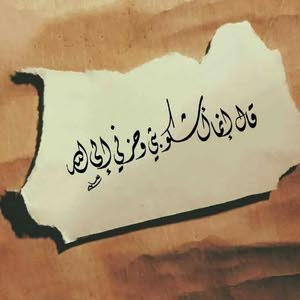 قال إنما أشكو بثي وحزني إلى الله